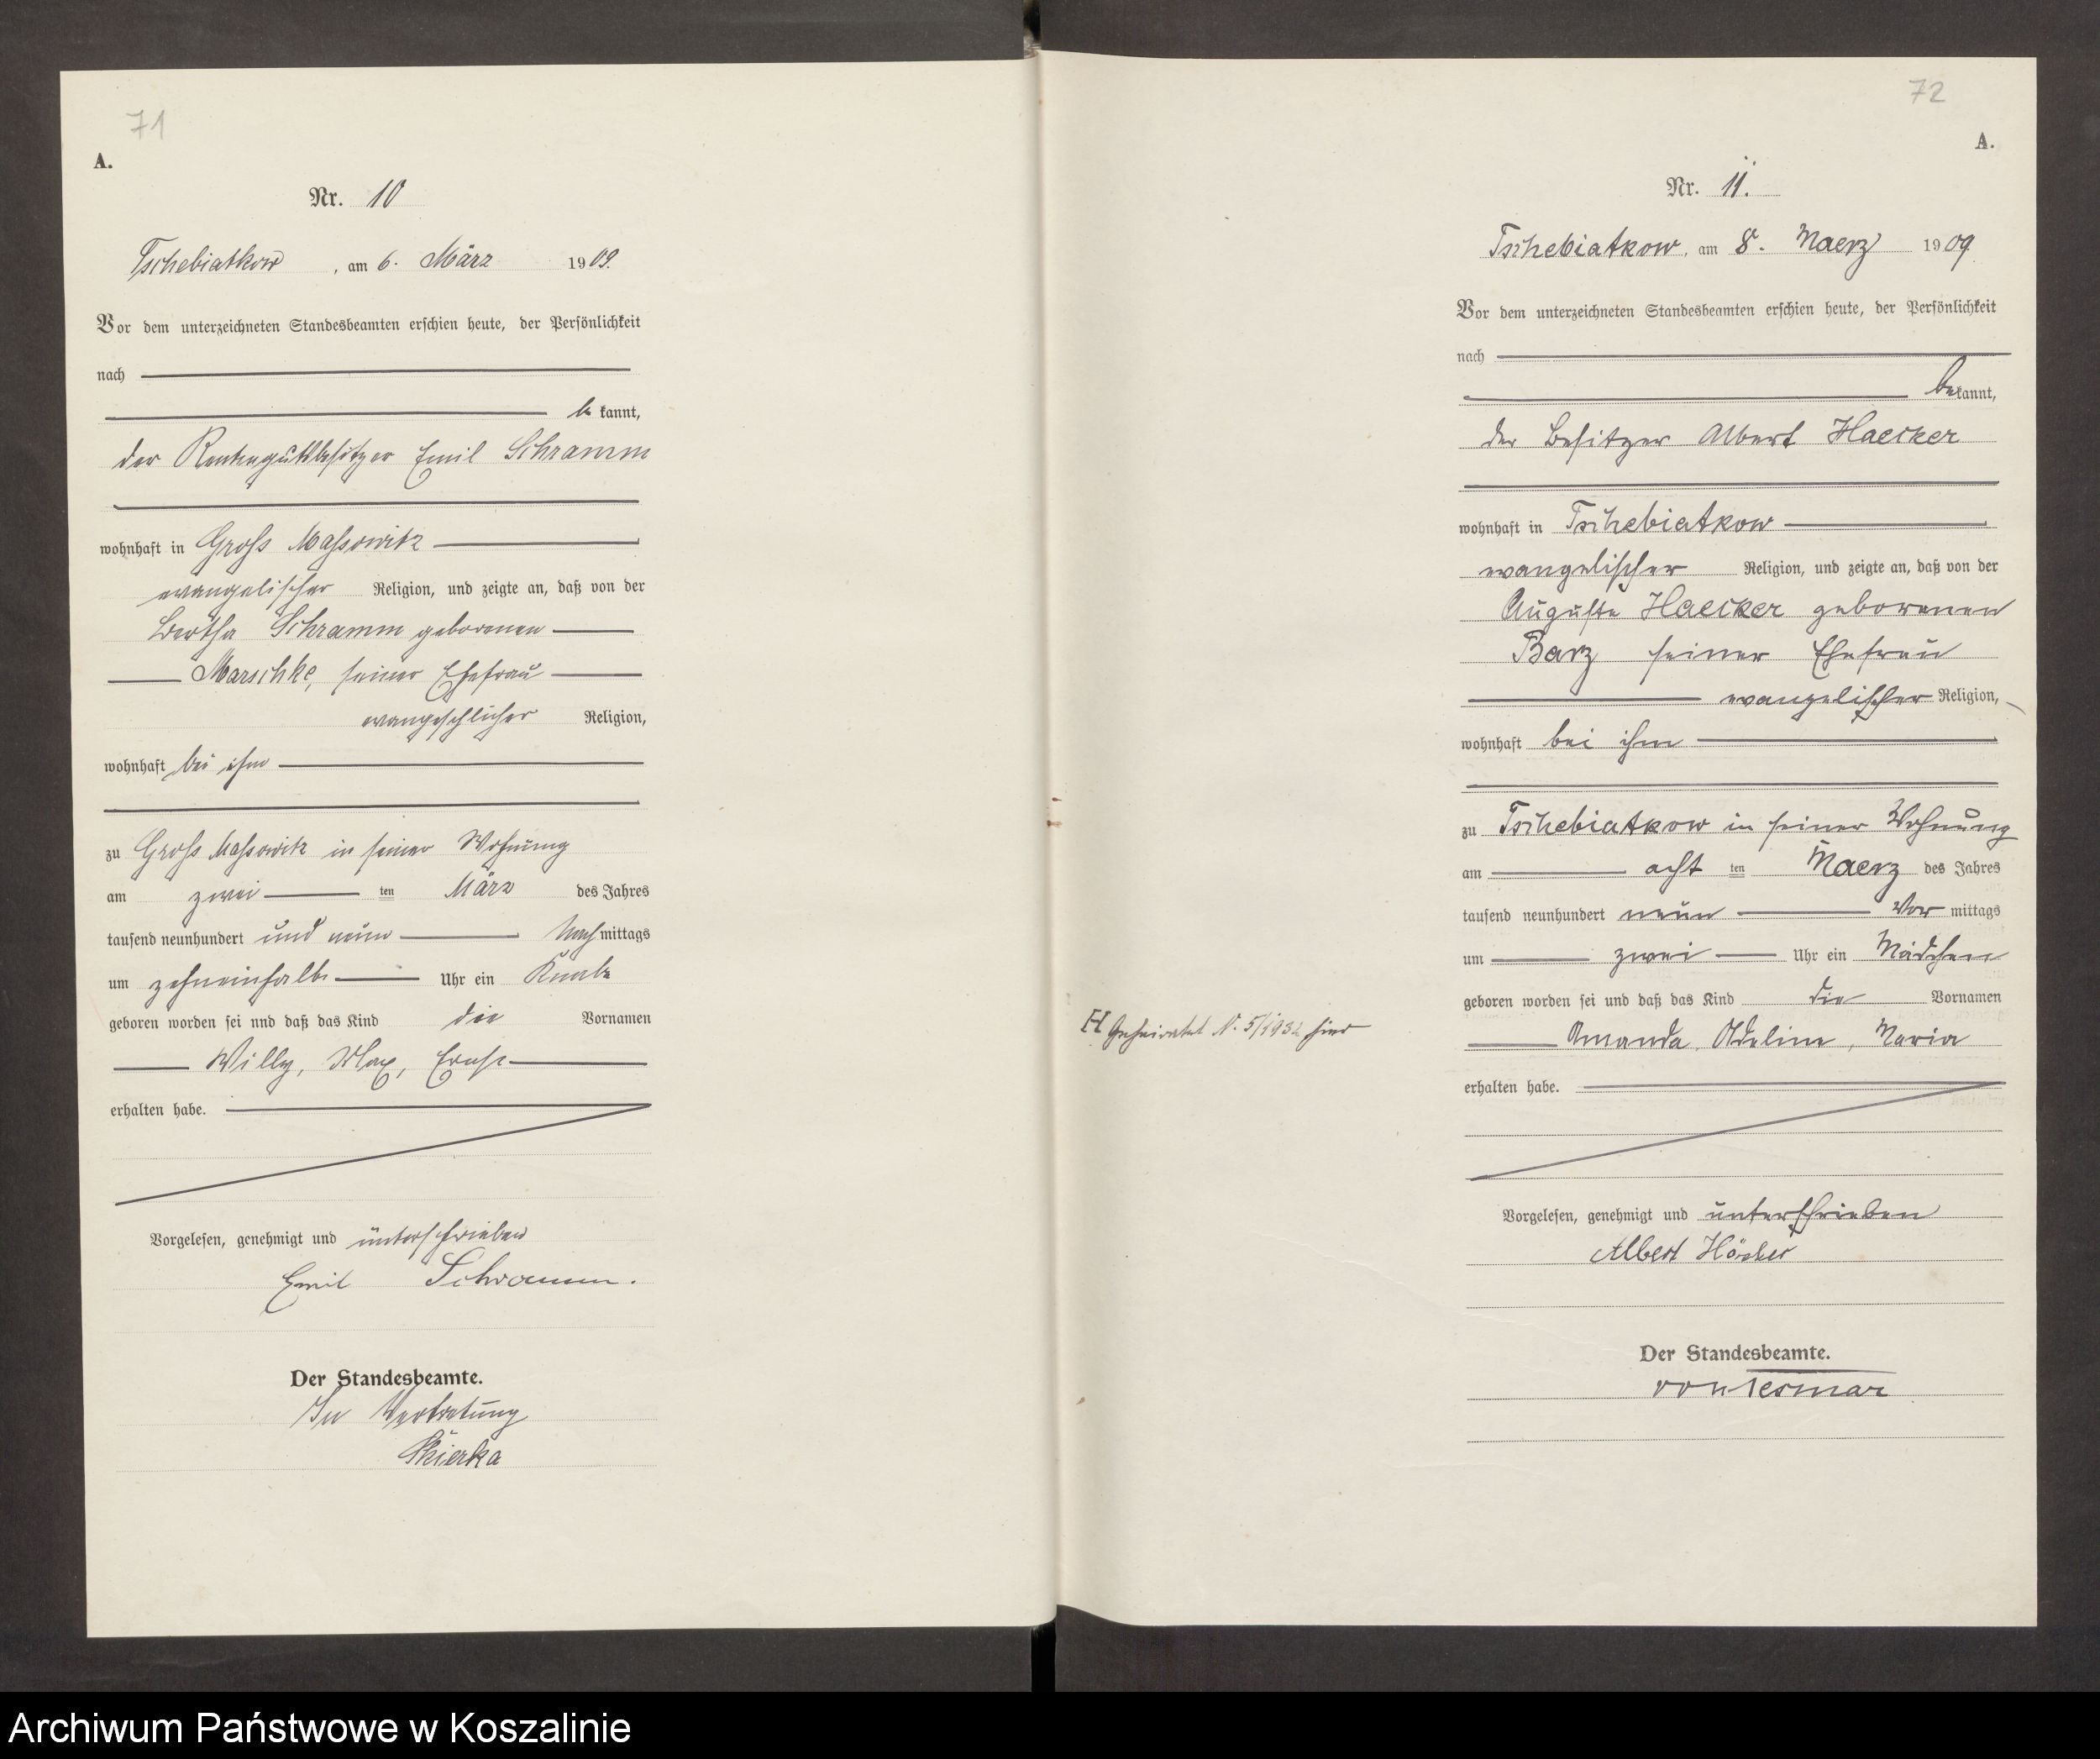 71
A.
Nr. 10
Tschebiatkow, am 6. März 1909.
Vor dem unterzeichneten Standesbeamten erschien heute, der Persönlichkeit
nach
be kannt,
der Rentengutsbesitzer Emil Schramm
wohnhaft in Gross Massowitz
evangelischer Religion, und zeigte an, daß von der
Bertha Schramm geborenen
Marschke, seiner Ehefrau
Religion,
wohnhaft bei ihm
zu Gross Massowitz in seiner Wohnung
am zwei ten März des Jahres
tausend neunhundert und neun Nachmittags
um zehneinhalb Uhr ein Knabe
geboren worden sei nnd daß das Kind die Vornamen
Willy, Max, Ernst
erhalten habe.
Vorgelesen, genehmigt und unterschrieben
Emil Schramm.
Der Standesbeamte.
In Vertretung
Skierka
72
A.
Nr. 11.
Tschebiatkow, am 8. Maerz 1909
Vor dem unterzeichneten Standesbeamten erschien heute, der Persönlichkeit
nach
bekannt,
der Besitzer Albert Haecker
wohnhaft in Tschebiatkow
evangelischer Religion, und zeigte an, daß von der
Auguste Haecker geborenen
Barz seiner Ehefrau
evangelischer Religion,
wohnhaft bei ihm
zu Tschebiatkow in seiner Wohnung
am acht ten Maerz des Jahres
tausend neunhundert neun Vor mittags
um zwei Uhr ein Mädchen
geboren worden sei und daß das Kind die Vornamen
Amanda, Adeline, Maria
erhalten habe.
H Geheiratet N. 5/1932 hier
Vorgelesen, genehmigt und unterschrieben
Albert Häcker
Der Standesbeamte.
von Tesmar
Archiwum Państwowe w Koszalinie